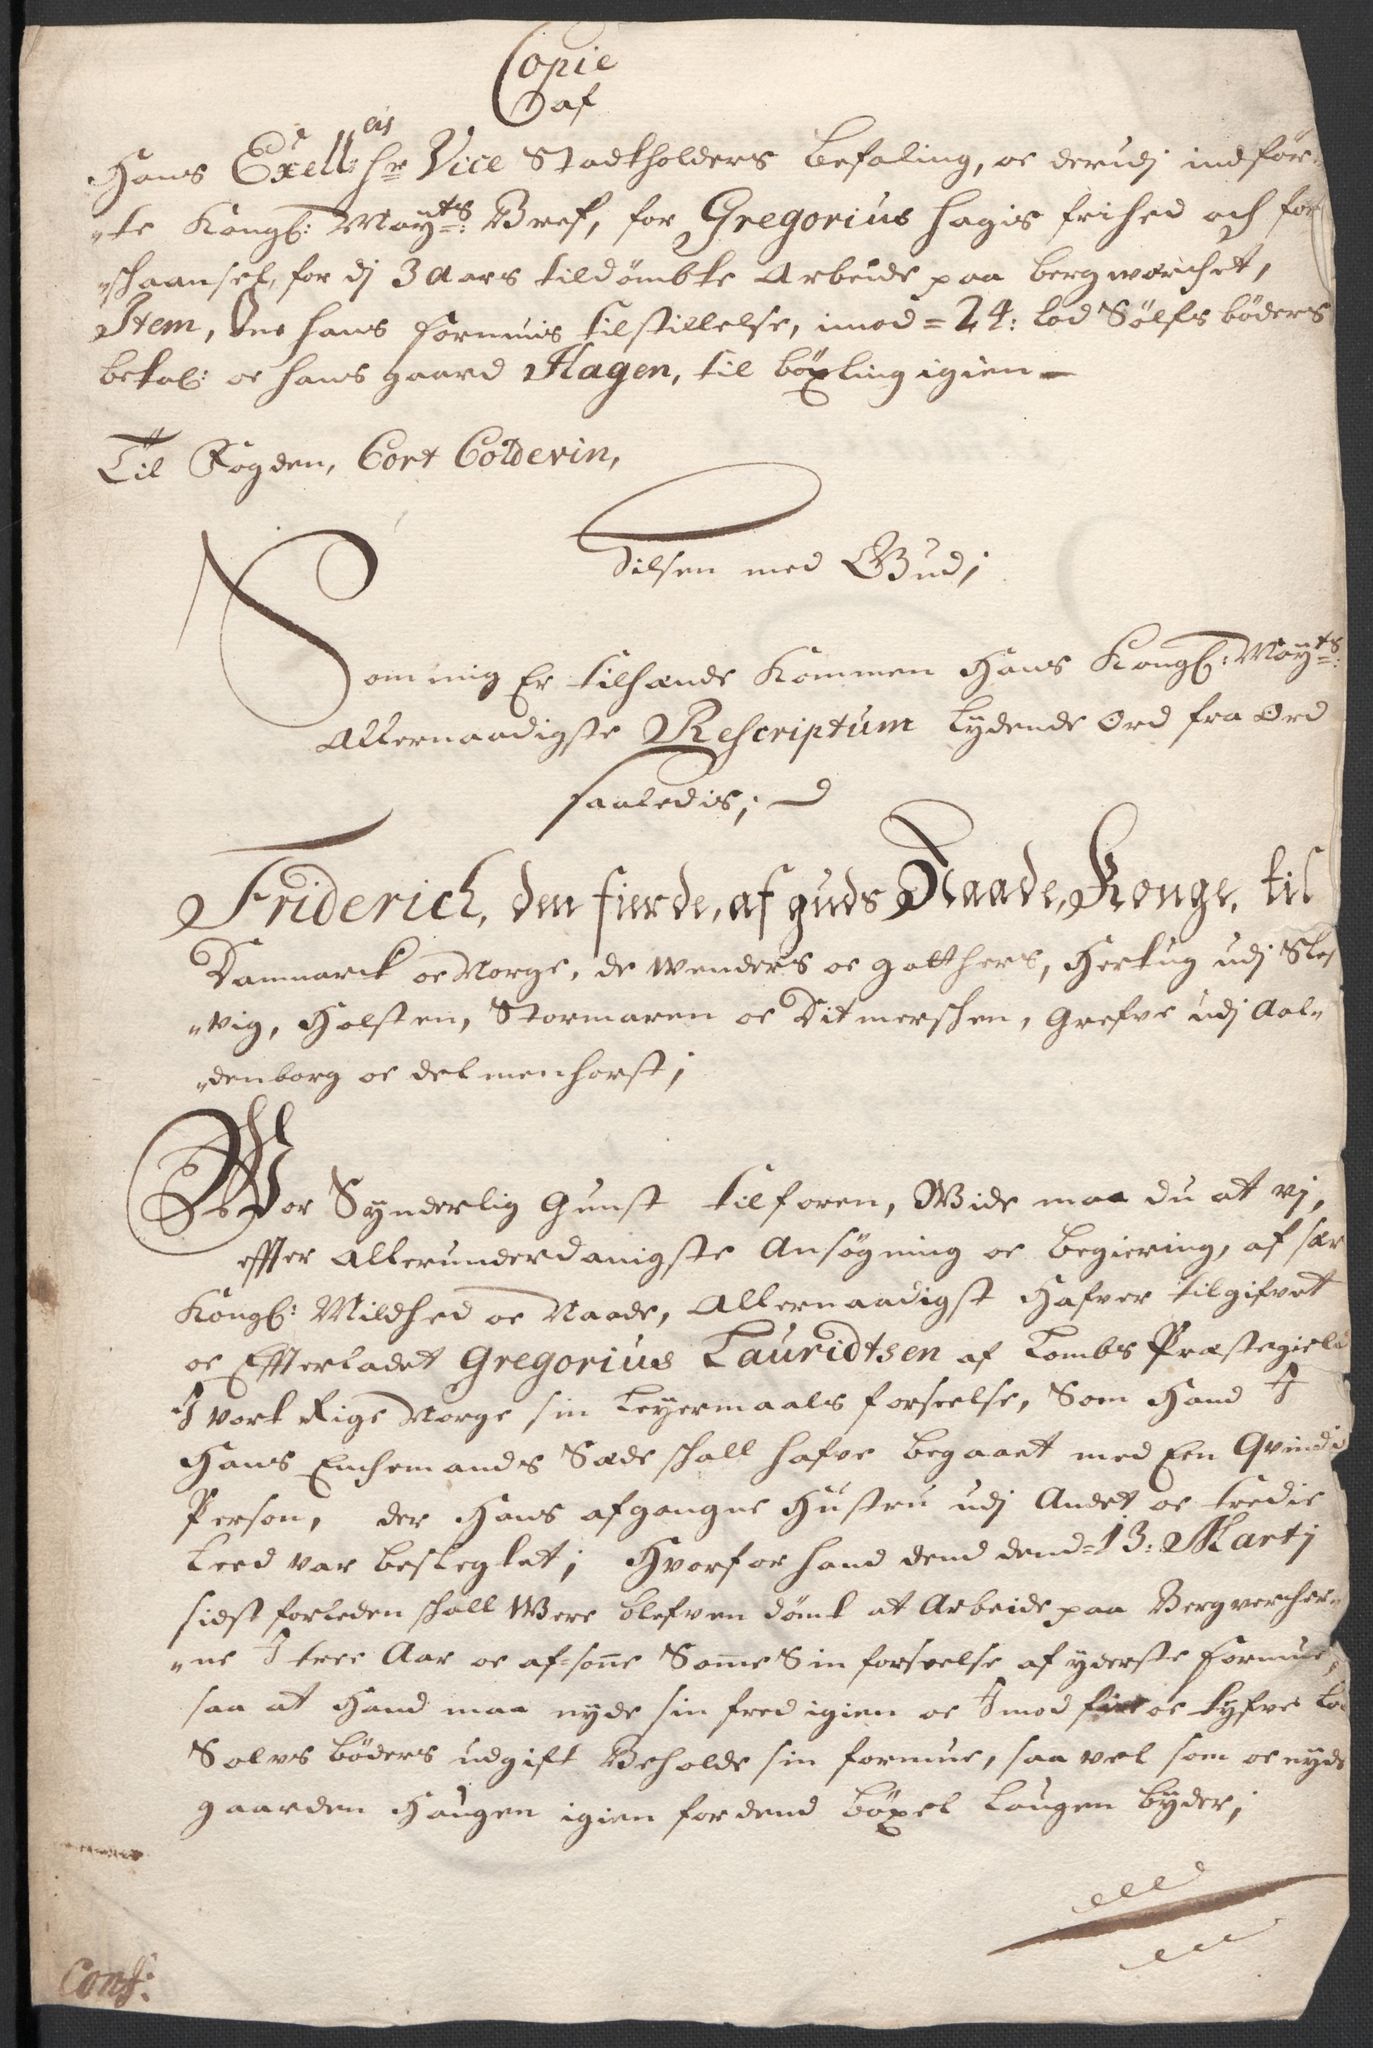 Copie
af
Hans Excell: eis hr Vice Stadtholders befaling, oc derudj indför-
"te Kongl: Mayts: Bref, for Gregorius Hagis frihed och for
"schaansel, for dj 3 aars tildömbte Arbeide paa bergwerchet,
Item, Om hans formuis tilstillelse, imod = 24: lod Sölfs böders
betal: oc hans gaard Hagen, til böxling igien -
Til Fogden, Cort Colderin,
Hilsen med Gud;
Som mig Er tilhænde Kommen Hans Kongl: Mayts:
Allernaadigste Rescriptum lydende Ord fra Ord
saaledis;
Friderich, den fierde, af guds Naade, Konge, til
Danmarck oc Norge, de Wenders oc Gotthers, Hertug udj Sles
"vig, Holsten, Stormaren oc Ditmerschen, Grefve udj Aal"
"denborg oc delmenhorst;
Vor Synderlig Gunst tilforen, Wide maa du at vj,
effter Allerunderdanigste Ansögning oc begiering, af sær
Kongl: Mildhed oc Naade, Allernaadigst Hafver tilgifvet
oc Effterladet Gregorius Lauridtsen af Lombs Præstegield
I vort Rige Norge sin Leyermaals forseelse, Som Hand I
Hans Enchemands Sæde schall hafve begaaet med Een Qvinde
Person, der Hans afgangne Hustru udj Andet oc tredie
Leed var beslegtet; Hvorfor hand dend dend = 13: Martj
sidst forleden schall Were blefven dömt at Arbeide paa Bergvercher-
"ne I tree Aar oc af-sone Same Sin forseelse af yderste formue,
saa at Hand maa nyde sin fred igien oc Imod fire oc tyfve Lod
Solvs böders udgift Beholde sin formue, saa vel som oc nyde
gaarden Haugen igien for dend böxel Laugen byder;
Conf: